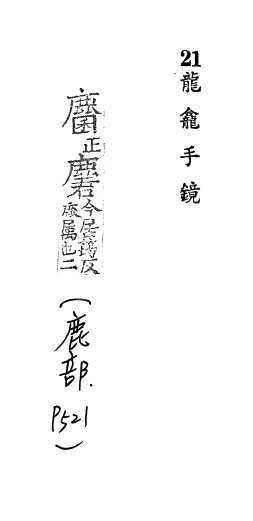 21龍龕手鏡
麕正麏今居筠反
属也二
(鹿部.
P521)